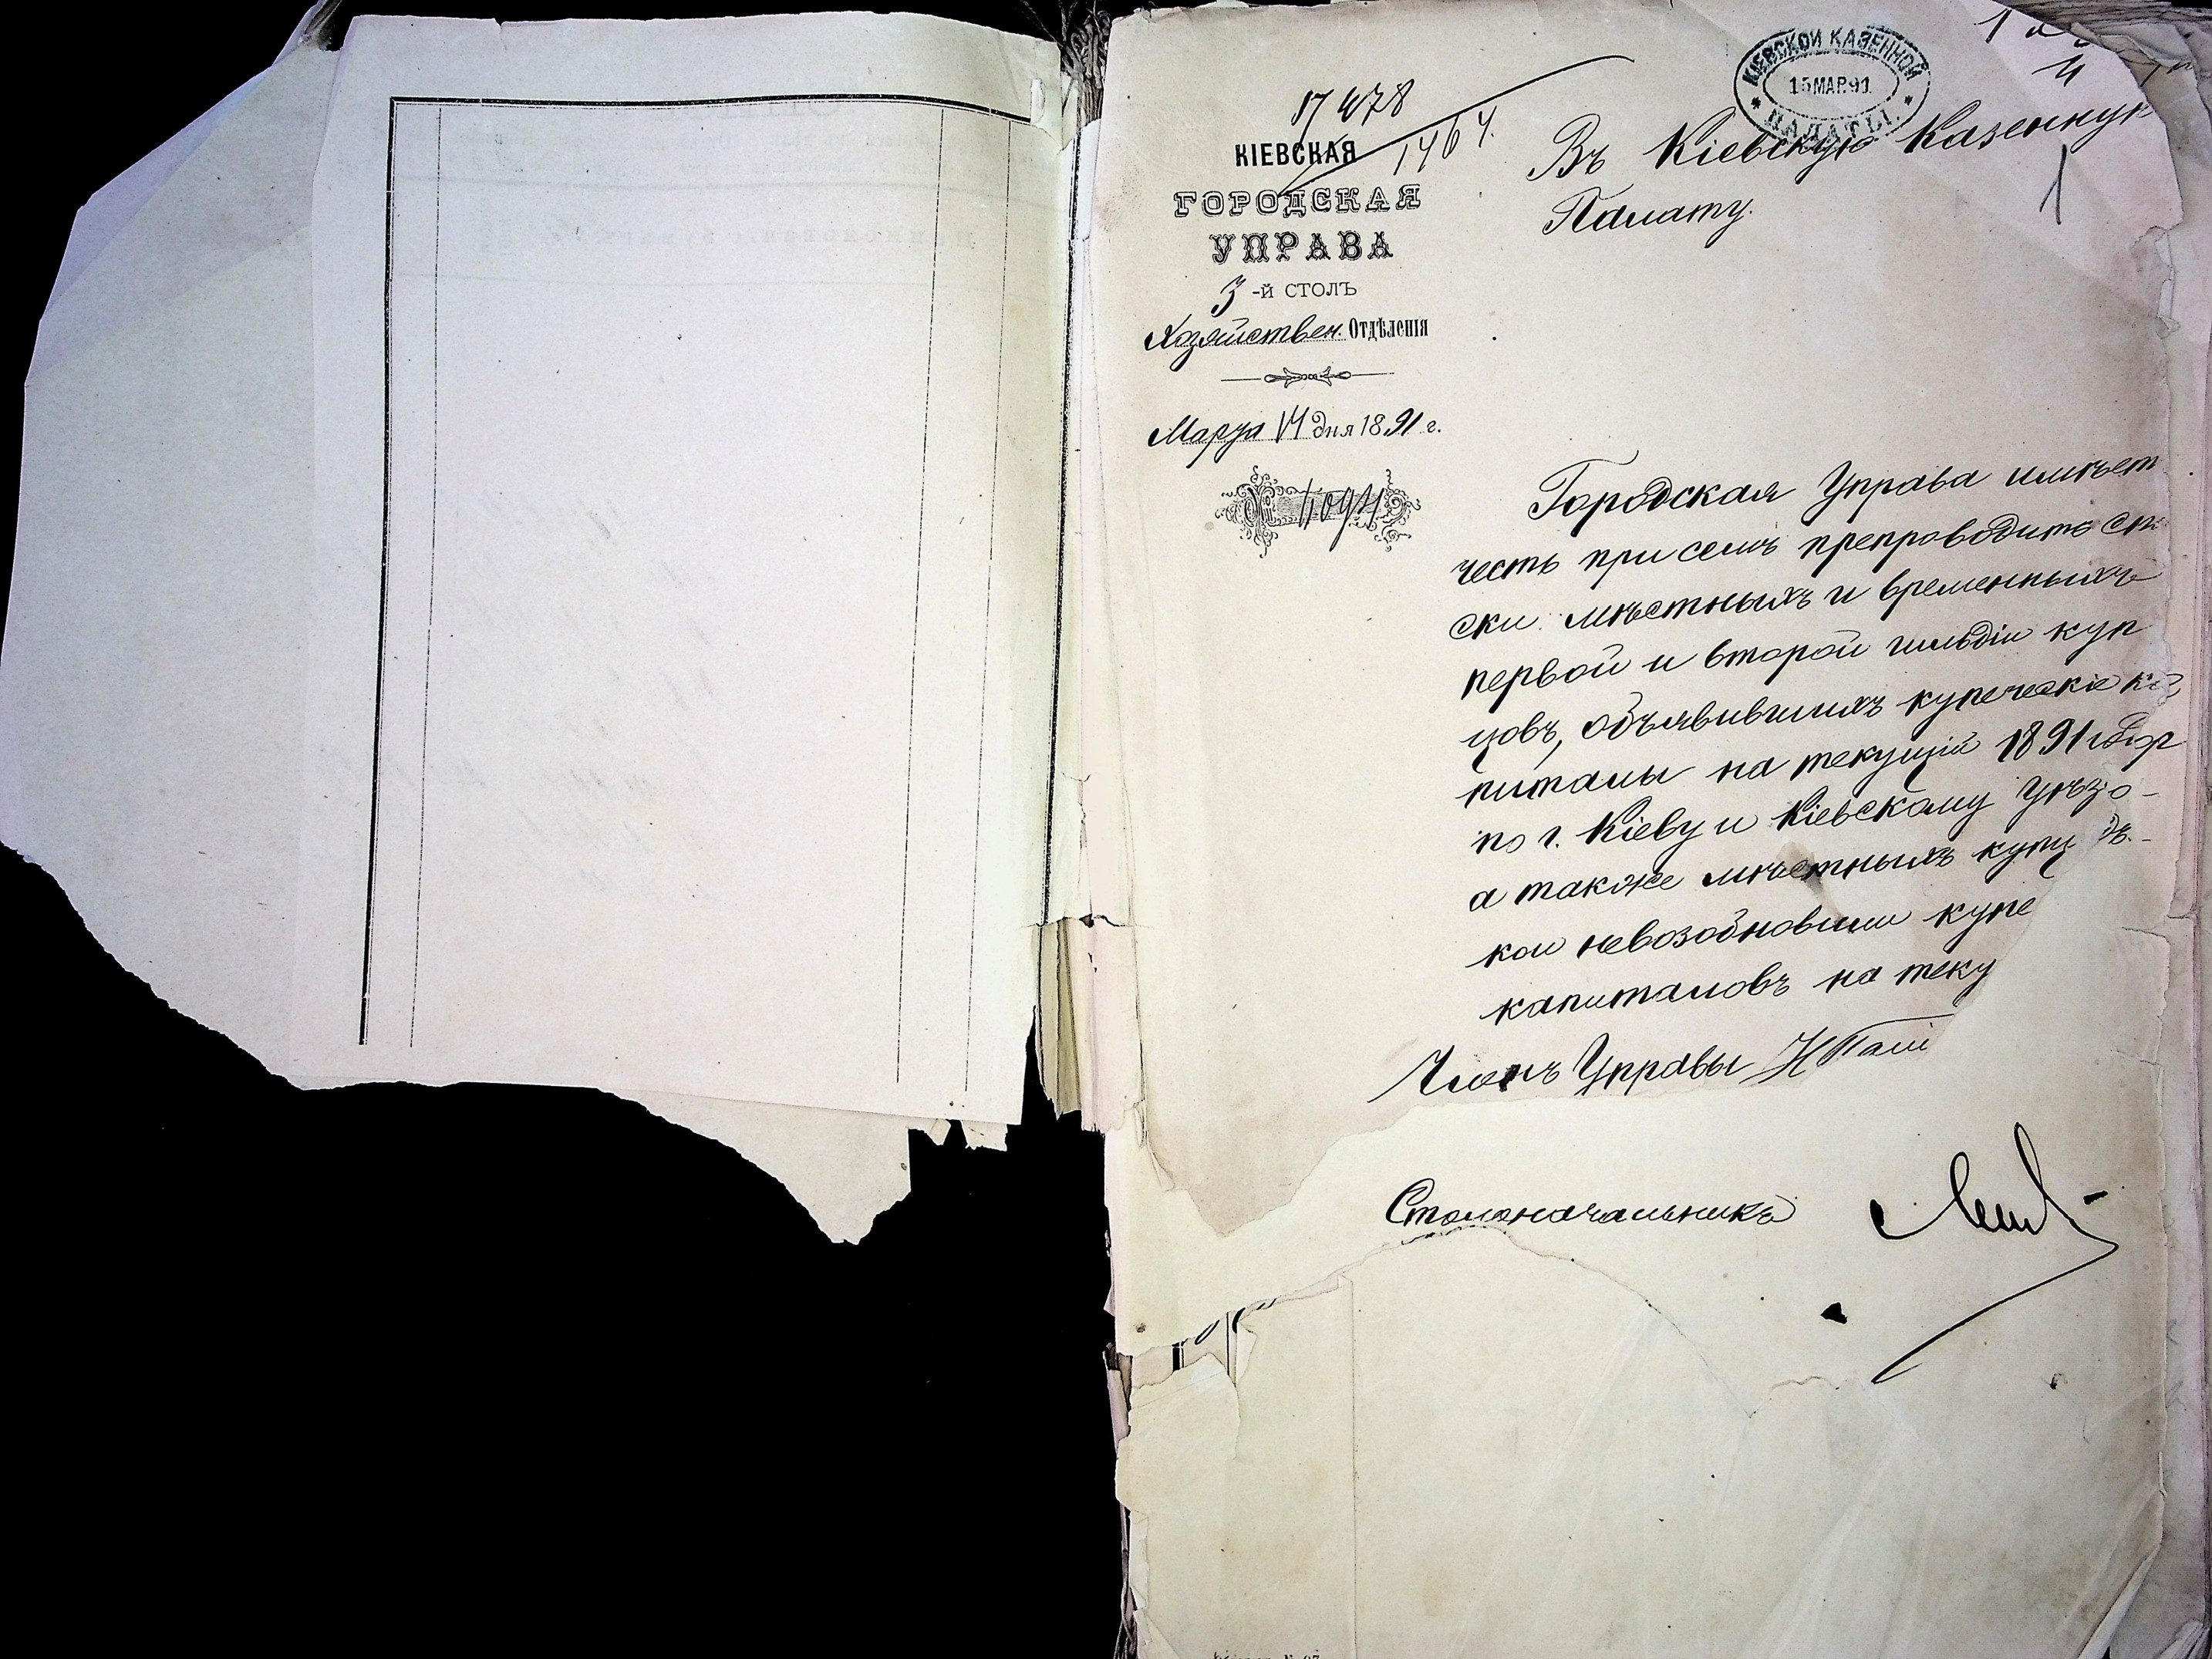 17478
1464.
КІЕВСКАЯ
ГОРОДСКАЯ
УПРАВА
3-й СТОЛЪ
Хозяйствен. Отдѣленія
Марта 14 дня 1891 г.
№ 4094
КІЕВСКОЙ КАЗЕННОЙ
15 МАР.91.
ПАЛАТЫ.
1
Въ Кіевскую Казенную
Палату.
Городская Управа имѣет
честь при семъ препроводить спи
ски мѣстныхъ и временныхъ
первой и второй гильдіи куп
цовъ, объявившихъ купеческіе ка
питалы на текущій 1891 год
по г. Кіеву и Кіевскому уѣзд
а также мѣстныхъ купц
кои невозобновили купе
капиталовъ на теку
Членъ Управы
Столоначальникъ